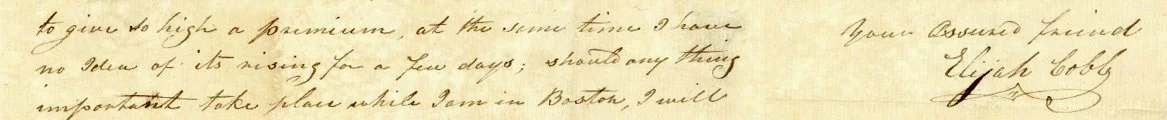 to give so high a premium, at the same time I have
no Idea of its rising for a few days; should any thing
important take place while I am in Boston, I will
Your Assured friend
Elijah Cobb